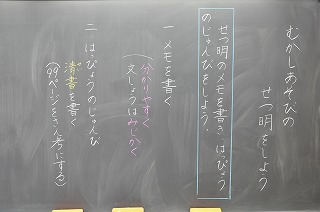 むかしあそびの
せつ明をしよう
せつ明のメモを書き、はっぴょう
のじゅんびをしよう。
一 メモを書く
(分かりやすく
文しょうはみじかく
二 はっぴょうのじゅんび
清書を書く
(99ページをさん考にする)